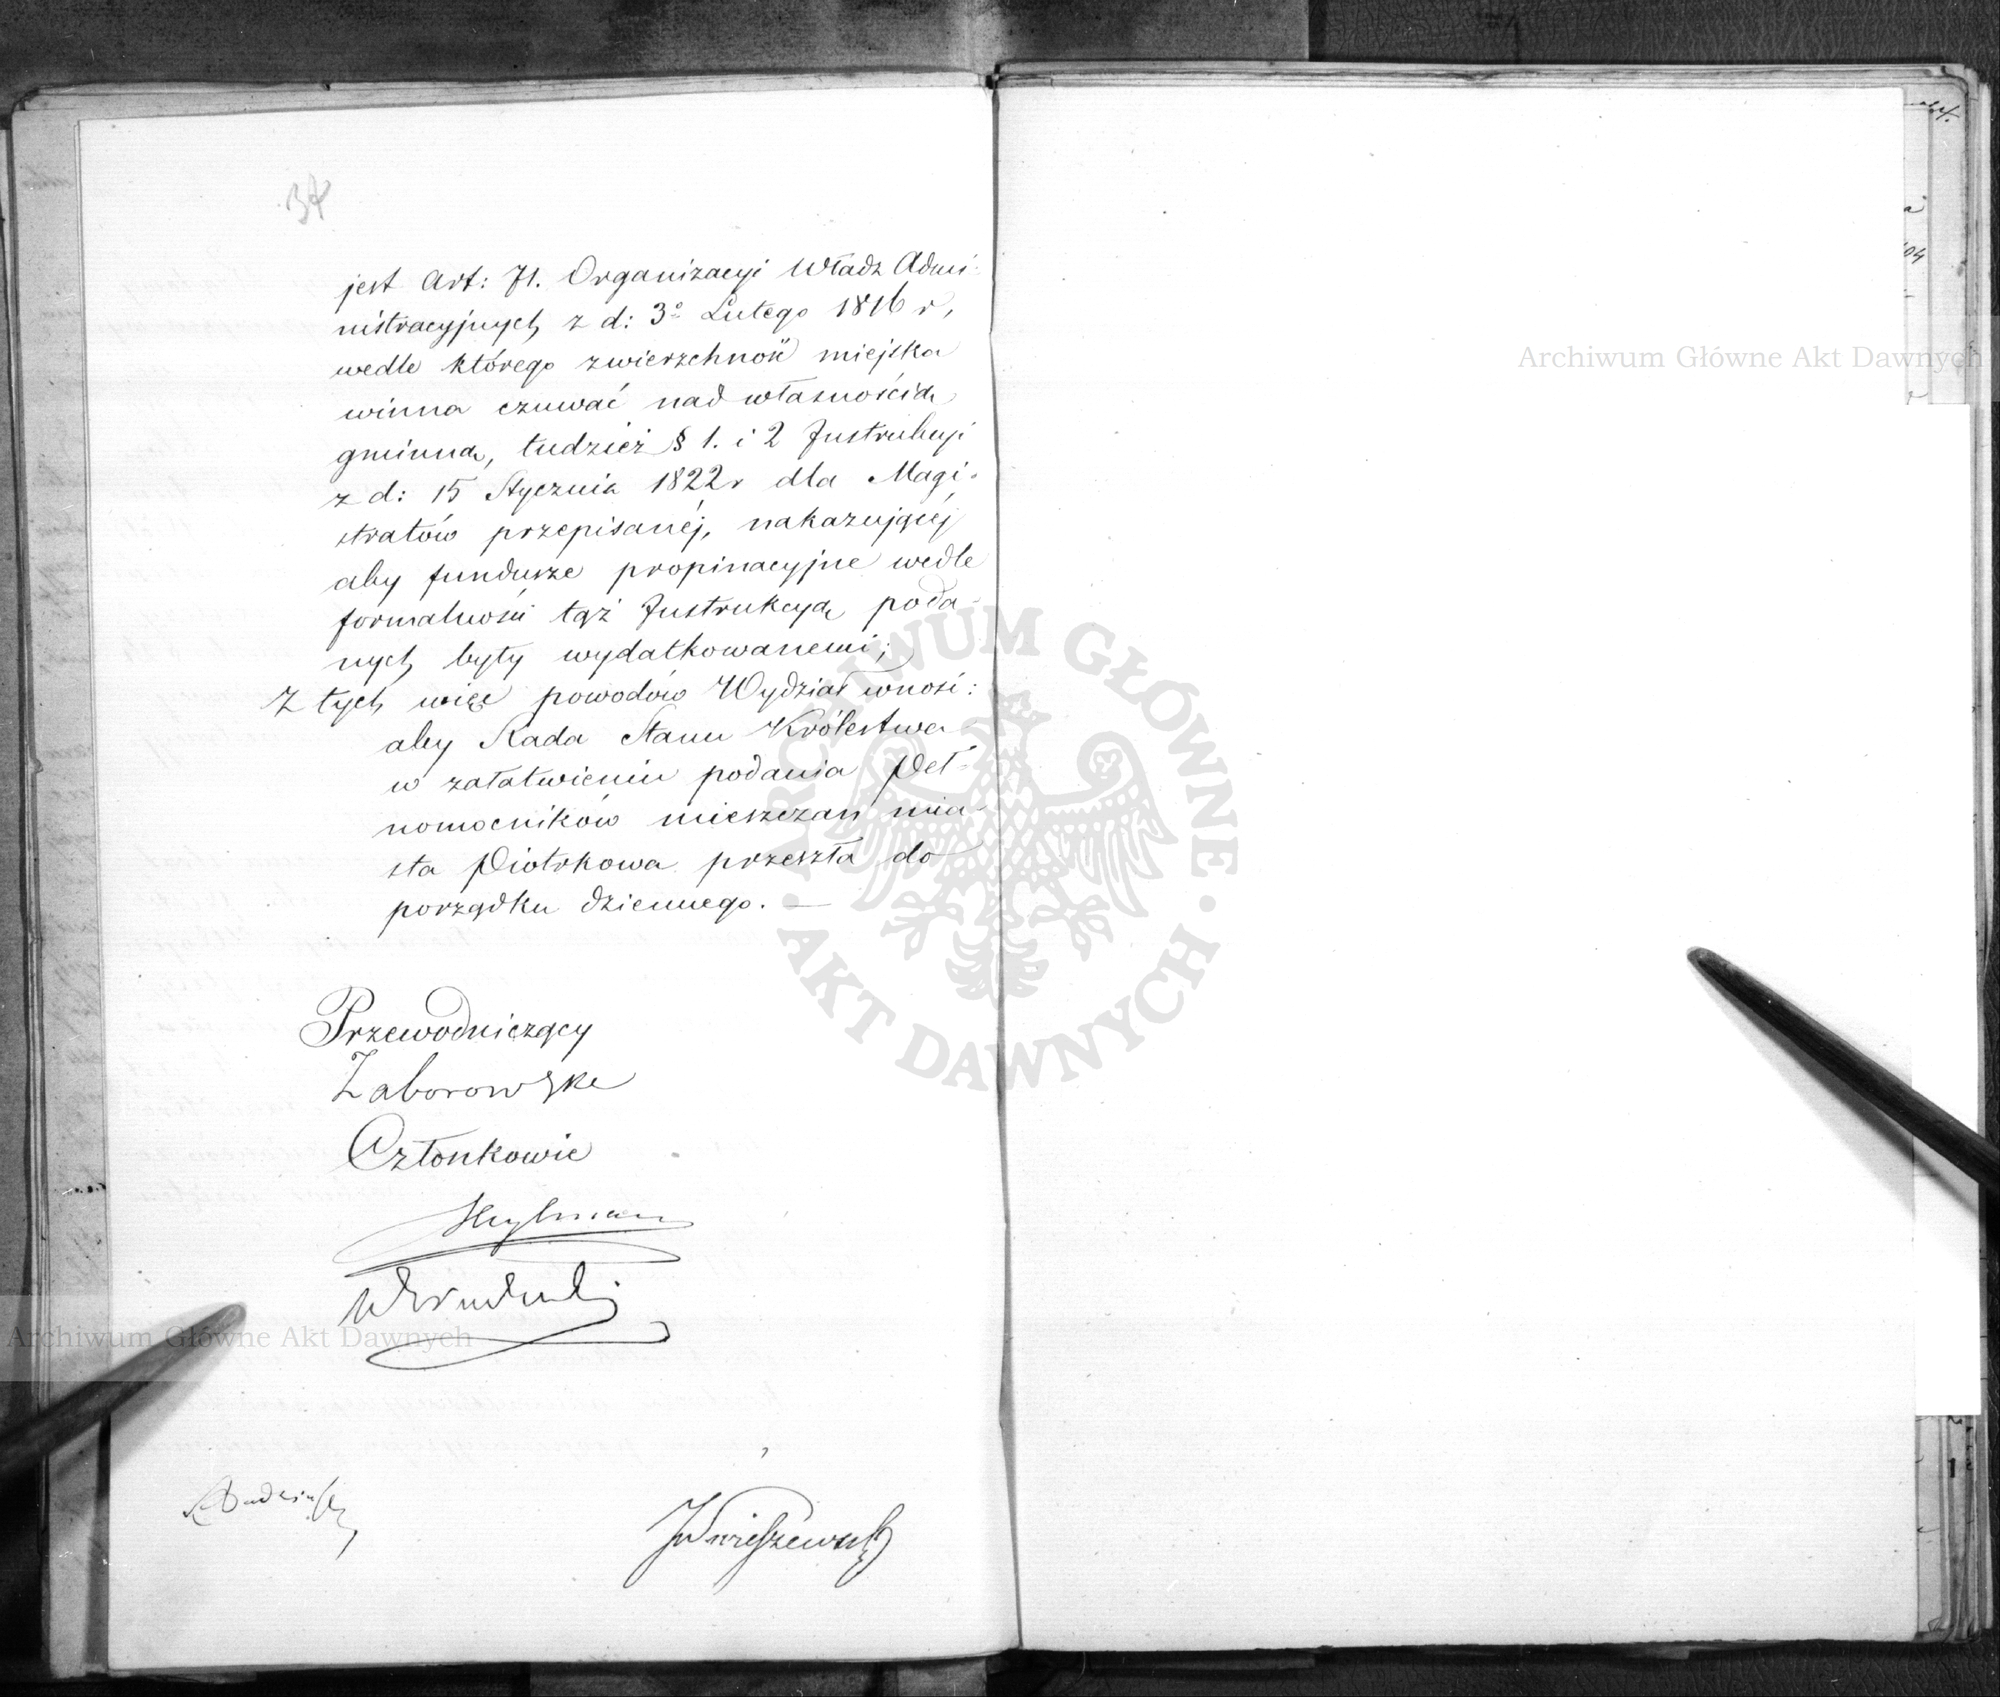 34
jest Art: 71. Organizacyi Władz Admi-
nistracyjnych z d: 3º Lutego 1816 r,
wedle którego zwierzchność miejska
winna czuwać nad własnością
gminną, tudzież § 1. i 2 Instrukcyi
z d: 15 Stycznia 1822 r dla Magi-
stratów przepisanéj, nakazującéj
aby fundusze propinacyjne wedle
formalności tąż Instrukcyą poda-
nych były wydatkowanemi;
Z tych więc powodów Wydział wnosi:
aby Rada Stanu Królestwa
w załatwieniu podania Peł-
nomocników mieszczan mia-
sta Piotrkowa przeszła do
porządku dziennego. —
Przewodniczący
Zaborowski
Członkowie
Heylman
Archiwum Główne Akt Dawnych
Archiwum Główne Akt Dawnych
ARCHIWUM GŁÓWNE AKT DAWNYCH